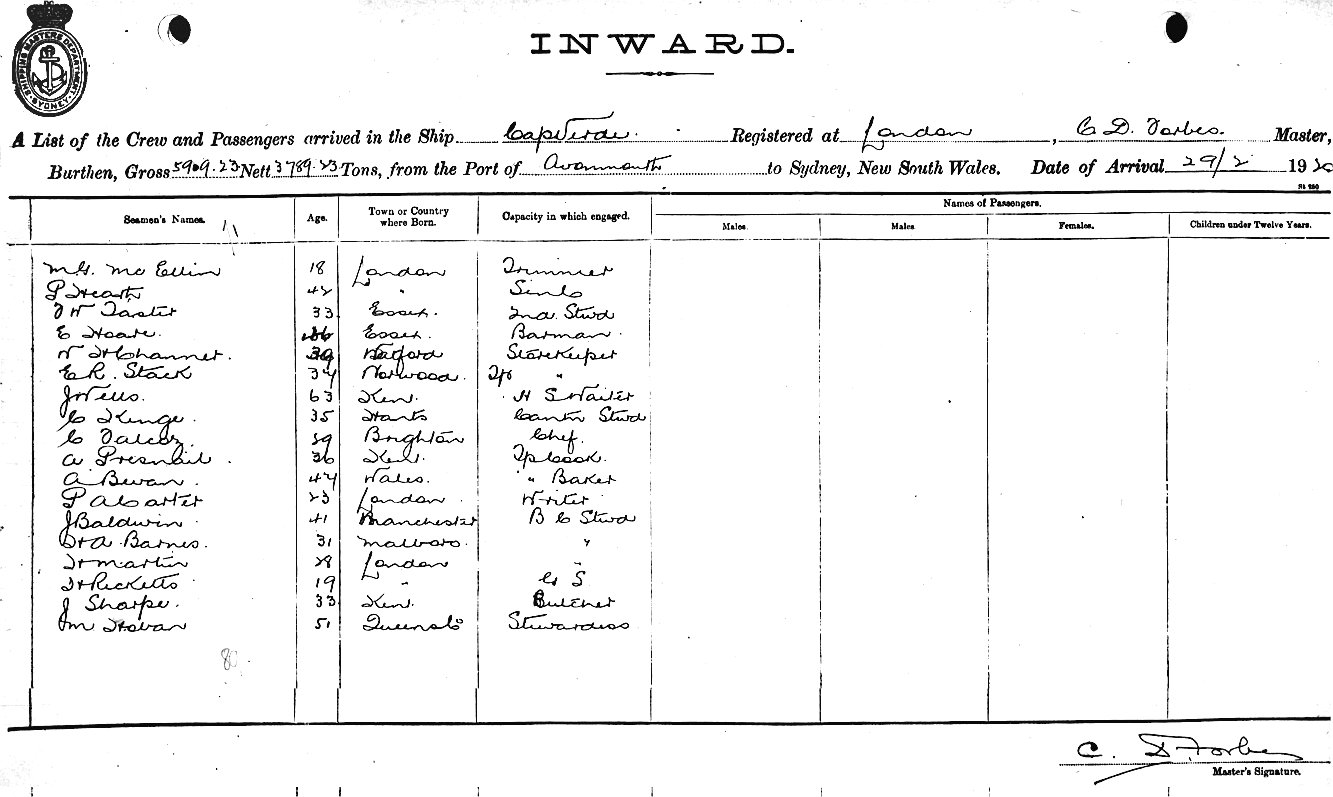 SHIPPING MASTERS DEPARTMENT SYDNEY
INWARD.
A List of the Crew and Passengers arrived in the Ship Cap Verde. Registered at London, C D. Forbes. Master,
Burthen, Gross 5909.23 Nett 3789.23 Tons, from the Port of Avonmouth to Sydney, New South Wales. Date of Arrival 29/2 1920
Names of Passengers.
Seamen's Names. Age. Town or Country where Born. Capacity in which engaged. Males. Males. Females. Children under Twelve Years.
Mc Ellin 18 London Trimmer
P Heath 42 "
Taster 33 Essex. 2nd. Stwd
E Hoare. Essex. Barman
39 Watford Storekeeper
E R. Stack 34 Norwood. "
J Wells. 63 Kent. Waiter
C Kenge. 35 Hants Stwd
C 59 Brighton Chef.
A Presnail. 36 Kent. Cook.
A Bevan. 44 Wales. " Baker
P A Carter 23 London. Writer
J Baldwin 41 Manchester B C Stwd
A. Barnes. 31 Malboro. "
H Martin 28 London "
H Ricketts 19 " G S
J Sharpe. 33 Kent. Butcher
M Hoban 51 Queenst'n Stewardess
80
C. D. Forbes
Master's Signature.